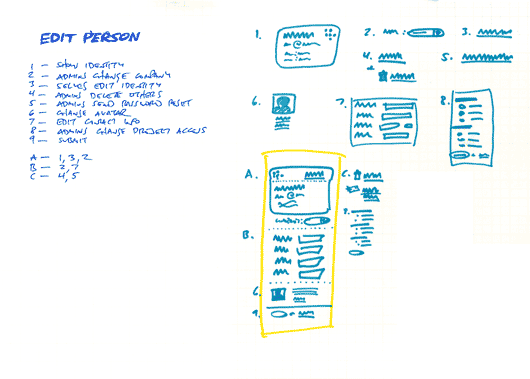 EDIT PERSON
1 — SHOW IDENTITY
2 — ADMINS CHANGE COMPANY
3 — SELVES EDIT IDENTITY
4 — ADMINS DELETE OTHERS
5 — ADMINS SEND PASSWORD RESET
6 — CHANGE AVATAR
7 — EDIT CONTACT INFO
8 — ADMINS CHANGE PROJECT ACCESS
9 — SUBMIT
A — 1, 3, 2
B — 2, 7
C — 4, 5
1.
2.
3.
4.
5.
6.
7.
8.
A.
C.
B.
6.
9.